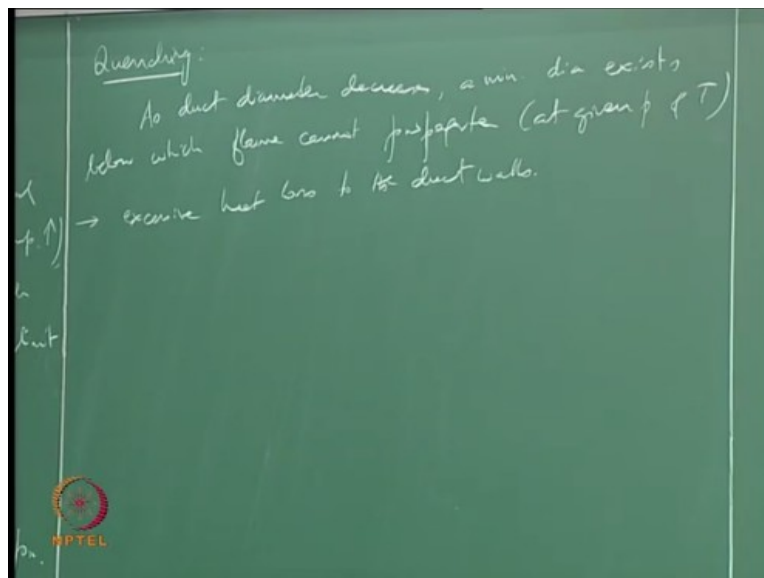 Quenching:
As duct diameter decreases, a min. dia exists
below which flame cannot propagate (at given p & T)
→ excessive heat loss to the duct walls.
p. ↑)
limit
NPTEL